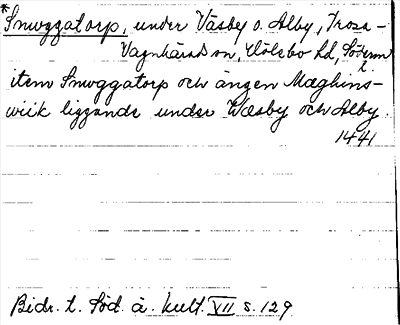 *Smuggatorp, under Väsby o. Alby, Trosa-
Vagnhärad sn, Hölebo hd, Söderm
l.
item Smuggatorp och ängen Mæghins-
wiik liggande under Wæsby och Alby.
1441
Bidr. t. Söd. ä. kult. VII s. 129